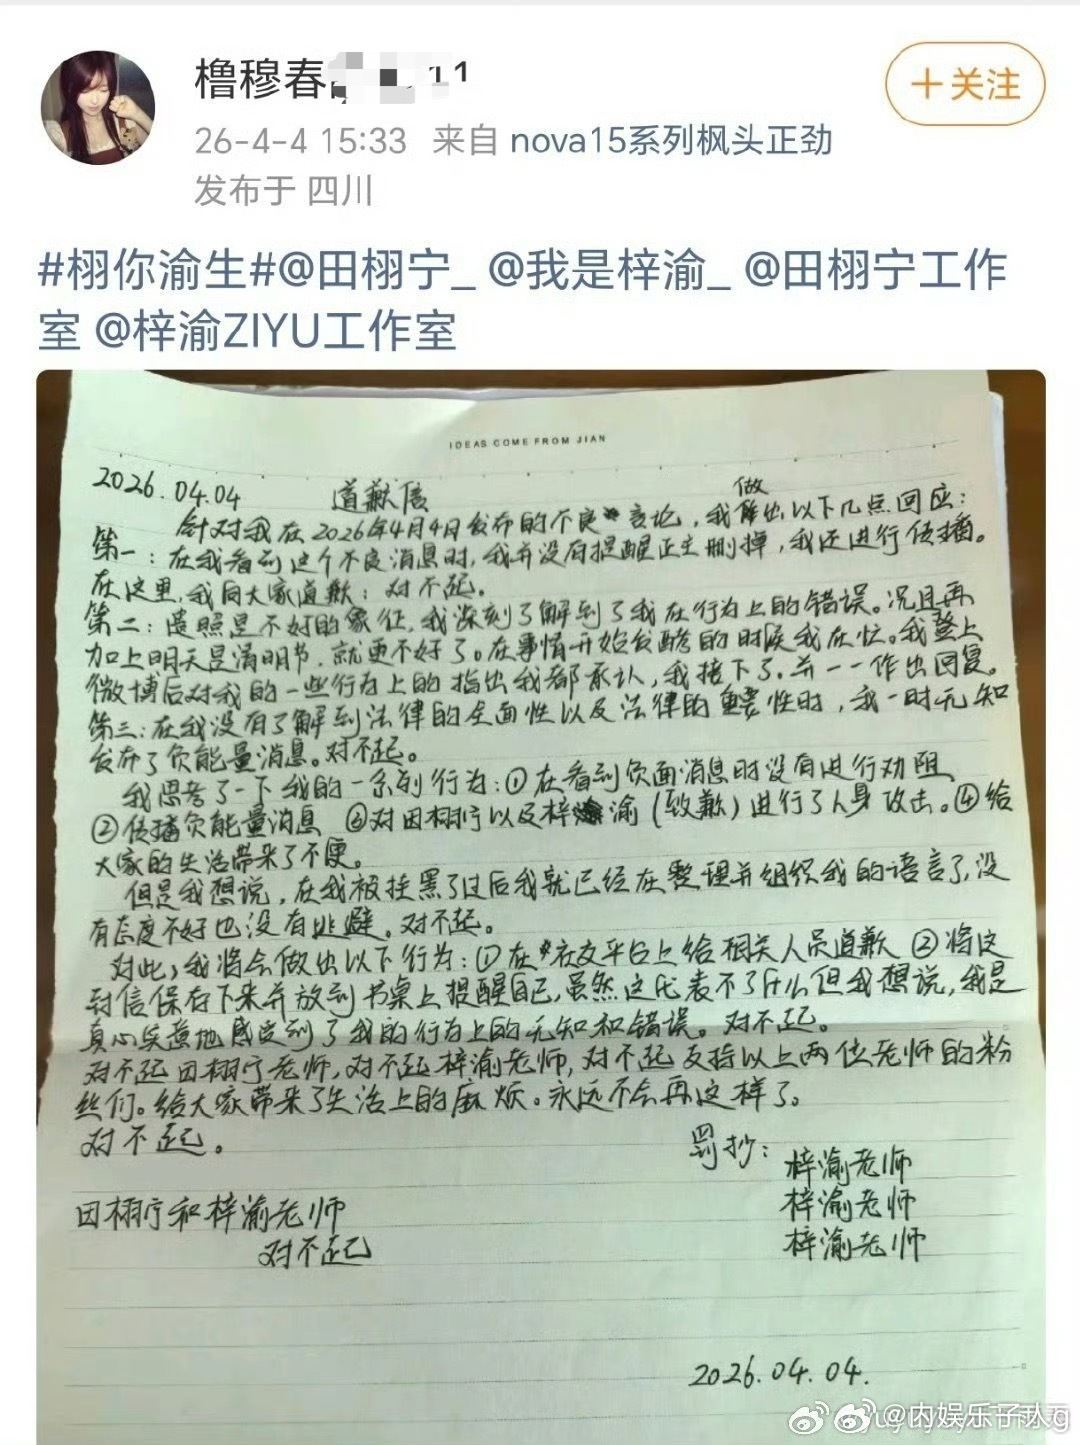 橹穆春
11
+关注
26-4-4 15:33 来自 nova15系列枫头正劲
发布于 四川
#栩你渝生#@田栩宁_ @我是梓渝_ @田栩宁工作
室 @梓渝ZIYU工作室
IDEAS COME FROM JIAN
2026.04.04 道歉信
针对我在2026年4月4日发布的不良言论,我做出以下几点回应:
第一:在我看到这个不良消息时,我并没有提醒正主删掉,我还进行传播。
在这里,我向大家道歉:对不起。
第二:遗照是不好的象征,我深刻了解到了我在行为上的错误。况且再
加上明天是清明节,就更不好了。在事情开始发酵的时候我在忙。我登上
微博后对我的一些行为上的指出我都承认,我接下了。并一一作出回复。
第三:在我没有了解到法律的全面性以及法律的重要性时,我一时无知
发布了负能量消息。对不起。
我思考了一下我的一系列行为:①在看到负面消息时没有进行劝阻
②传播负能量消息 ③对田栩宁以及梓渝(致歉)进行了人身攻击。④给
大家的生活带来了不便。
但是我想说,在我被挂黑了过后我就已经在整理并组织我的语言了,没
有态度不好也没有逃避。对不起。
对此,我将会做出以下行为:①在社交平台上给相关人员道歉 ②将这
封信保存下来并放到书桌上提醒自己,虽然这代表不了什么但我想说,我是
真心实意地感受到了我的行为上的无知和错误。对不起。
对不起田栩宁老师,对不起梓渝老师,对不起支持以上两位老师的粉
丝们。给大家带来了生活上的麻烦。永远不会再这样了。
对不起。
罚抄:梓渝老师
梓渝老师
梓渝老师
田栩宁和梓渝老师
对不起
2026.04.04.
@内娱乐子人g